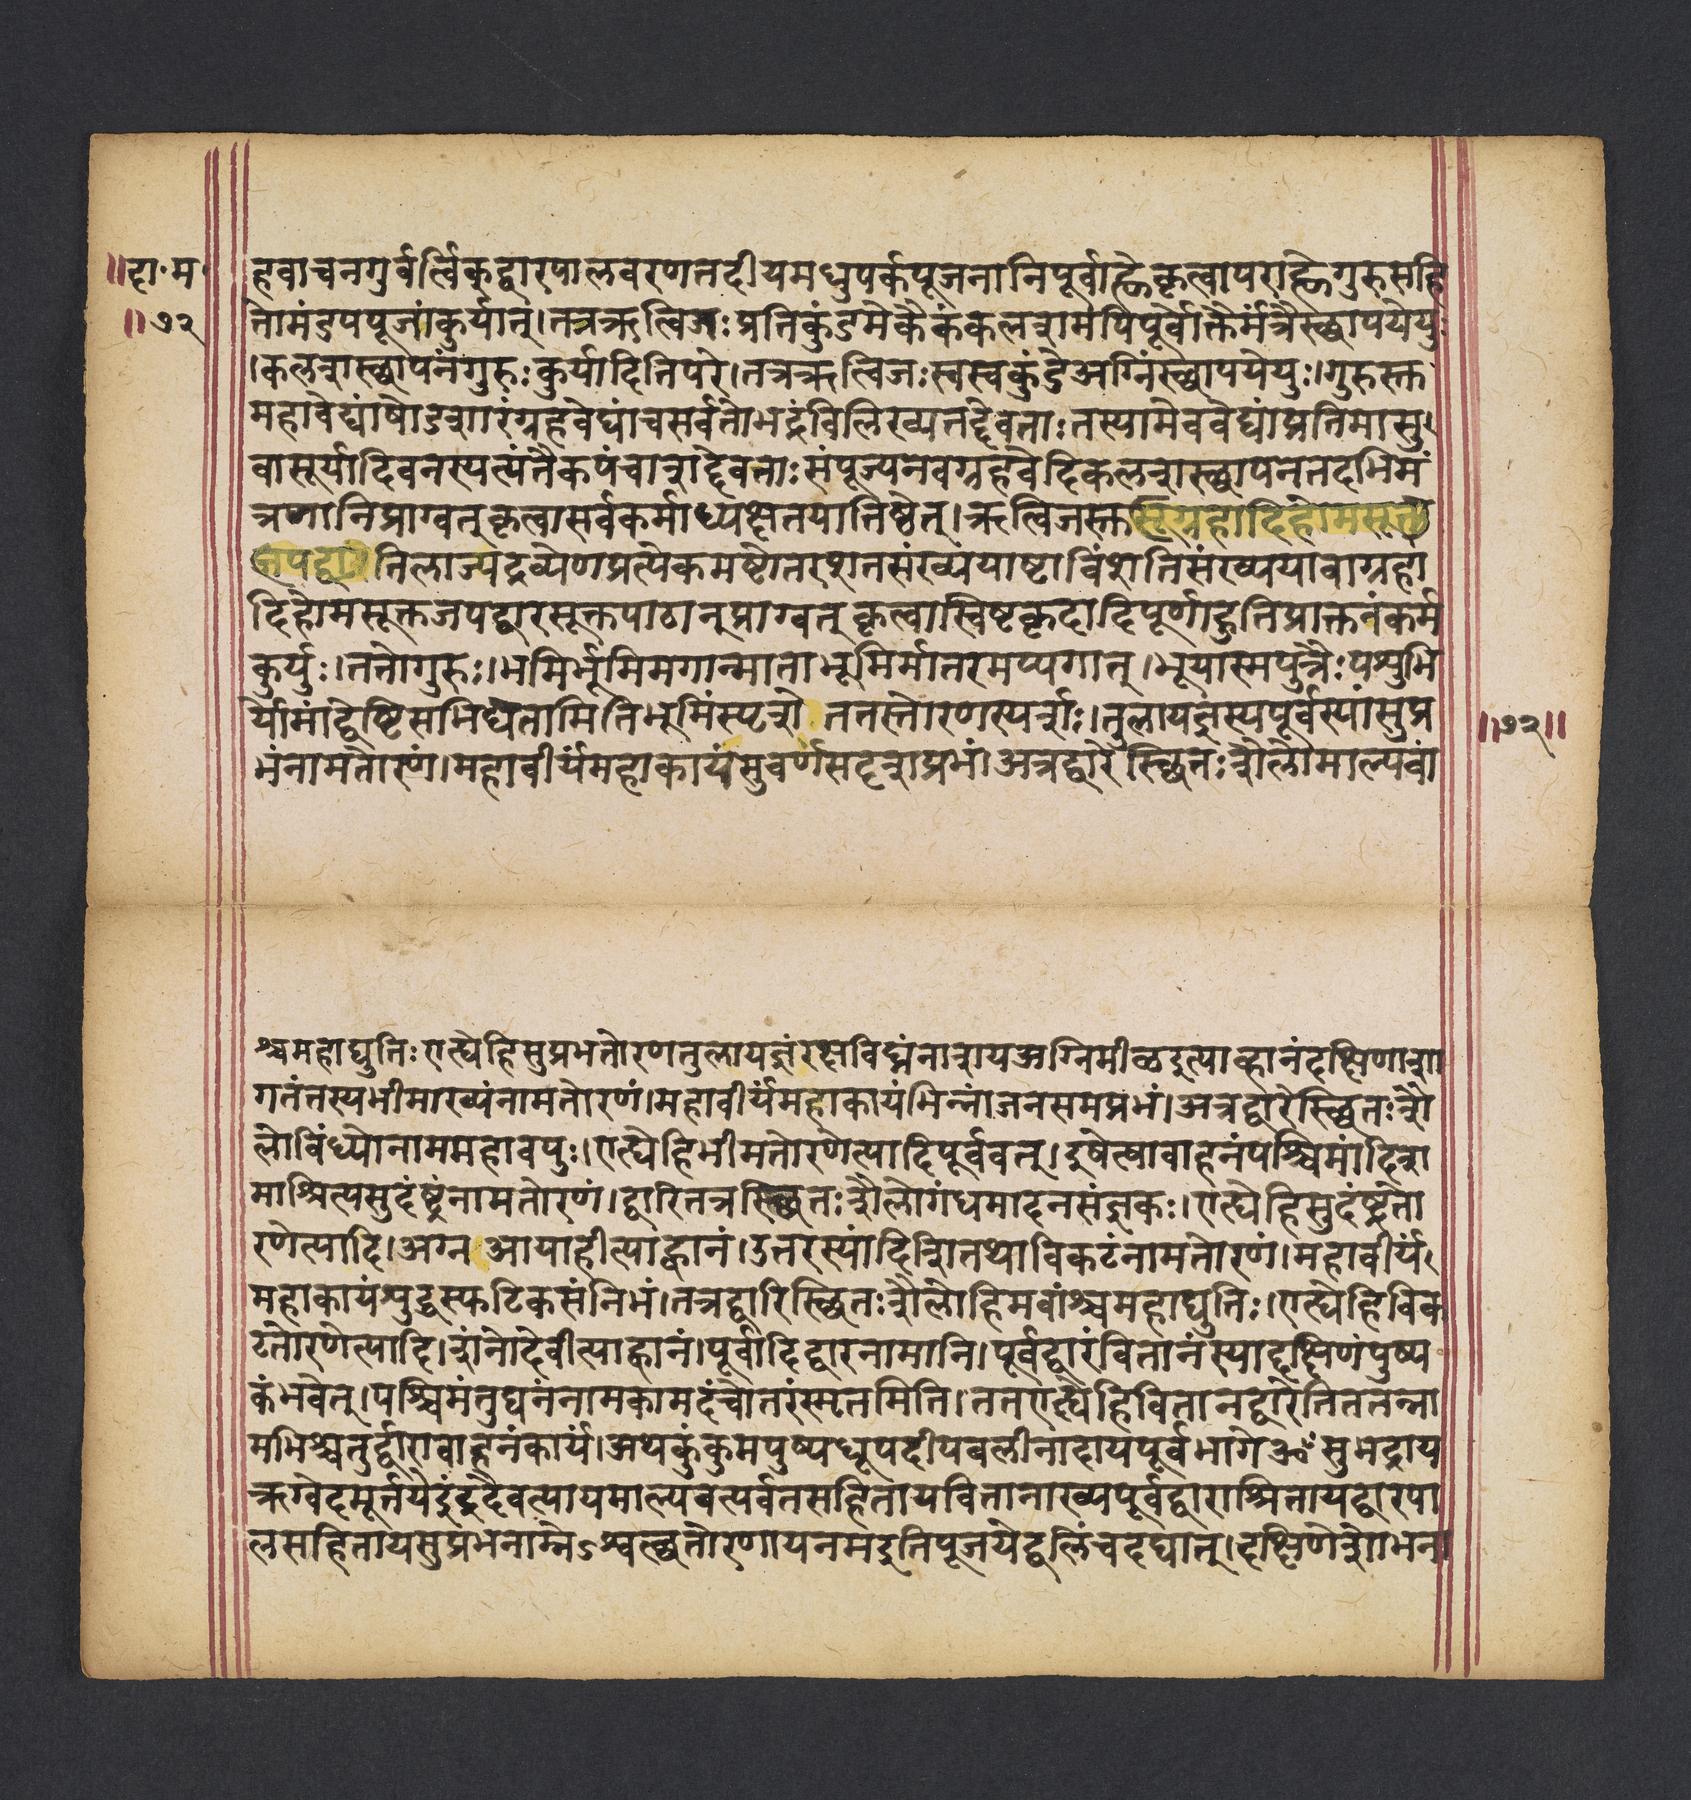 ॥दा॰म॰
॥७२
हवाचनगुर्वर्त्विक्द्वारपालवरणतदीयमधुपर्कपूजनानिपूर्वाह्णेकृत्वापराह्णेगुरुसहि
तोमंडपपूजांकुर्यात्।तत्रऋत्विजः प्रतिकुंडमेकैकंकलशमपिपूर्वोक्तैर्मंत्रैस्छापयेयुः
।कलशस्छापनंगुरुःकुर्यादितिपरे।तत्रऋत्विजःस्वस्वकुंडेअग्निंस्छापयेयुः।गुरुस्तु
महावेद्यांषोडशारंग्रहवेद्यांचसर्वतोभद्रंविलिख्यतद्देवताःतस्यामेववेद्यांप्रतिमासु
वासूर्यादिवनस्पत्यंतैकपंचाशद्देवताःसंपूज्यनवग्रहवेदिकलशस्छापनेतदभिमं
त्रणानिप्राग्वत्कृत्वासर्वकर्माध्यक्षतयातिष्ठेत्।ऋत्विजस्तुसग्रहादिहोमसूक्त
जपद्वा तिलाज्यद्रव्येणप्रत्येकमष्टोतरशतसंख्ययाष्टाविंशतिसंख्ययावाग्रहा
दिहोमसूक्तजपद्वारसूक्तपाठान्प्राग्वत्कृत्वास्विष्टकृदादिपूर्णाहुतिप्राक्तनंकर्म
कुर्युः।ततोगुरुः।भमिर्भूमिमगान्माताभूमिर्मातरमप्यगात्।भूयास्मपुत्रैःपशुभि
र्योमांद्वेष्टिसभिद्यतामितिभूमिंस्पृशे ततस्तोरणस्पर्शः।तुलायज्ञस्यपूर्वस्यांसुप्र
भंनामतोरणं।महावीर्यंमहाकायंसुवर्णसदृशप्रभं।अत्रद्वारेस्छितःशैलोमाल्यवां
॥७२॥
श्चमहाद्युतिःएह्येहिसुप्रभतोरणतुलायज्ञंरक्षविघ्नंनाशयअग्निमीळइत्याव्हानंदक्षिणाशा
गतंतस्यभीमाख्यंनामतोरणं।महावीर्यंमहाकायंभिन्नांजनसमप्रभं।अत्रद्वारेस्छितःशै
लोविंध्योनाममहावपुः।एह्येहिभीमतोरणेत्यादिपूर्ववत्।इषेत्वावाहनंपश्चिमांदिश
माश्रित्यसुदंष्ट्रंनामतोरणं।द्वारितत्रस्छितःशैलोगंधमादनसंज्ञकः।एह्येहिसुदंष्ट्रतो
रणेत्यादि।अग्नआयाहीत्याह्वानं।उत्तरस्यांदिशितथाविकटंनामतोरणं।महावीर्यं
महाकायंशुद्धस्फटिकसंनिभं।तत्रद्वारिस्छितःशैलोहिमवांश्चमहाद्युतिः।एह्येहिविक
टतोरणेत्यादि।शंनोदेवीत्याह्वानं।पूर्वादिद्वारनामानि।पूर्वद्वारंवितानंस्याद्दक्षिणंपुष्प
कंभवेत्।पश्चिमंतुघनंनामकामदंचोतरंस्मृतमिति।ततएह्येहिवितानद्वारेतिततन्ना
मभिश्चतुर्द्वारावाहनंकार्यं।अथकुंकुमपुष्पधूपदीपबलीनादायपूर्वभागेॐसुभद्राय
ऋग्वेदमूर्तयेइंद्रदैवत्यायमाल्यवत्पर्वतसहितायवितानाख्यपूर्वद्वाराश्रितायद्वारपा
लसहितायसुप्रभनाम्नेऽश्वत्छतोरणायनमइतिपूजयेद्बलिंचदद्यात्।दक्षिणेशोभना